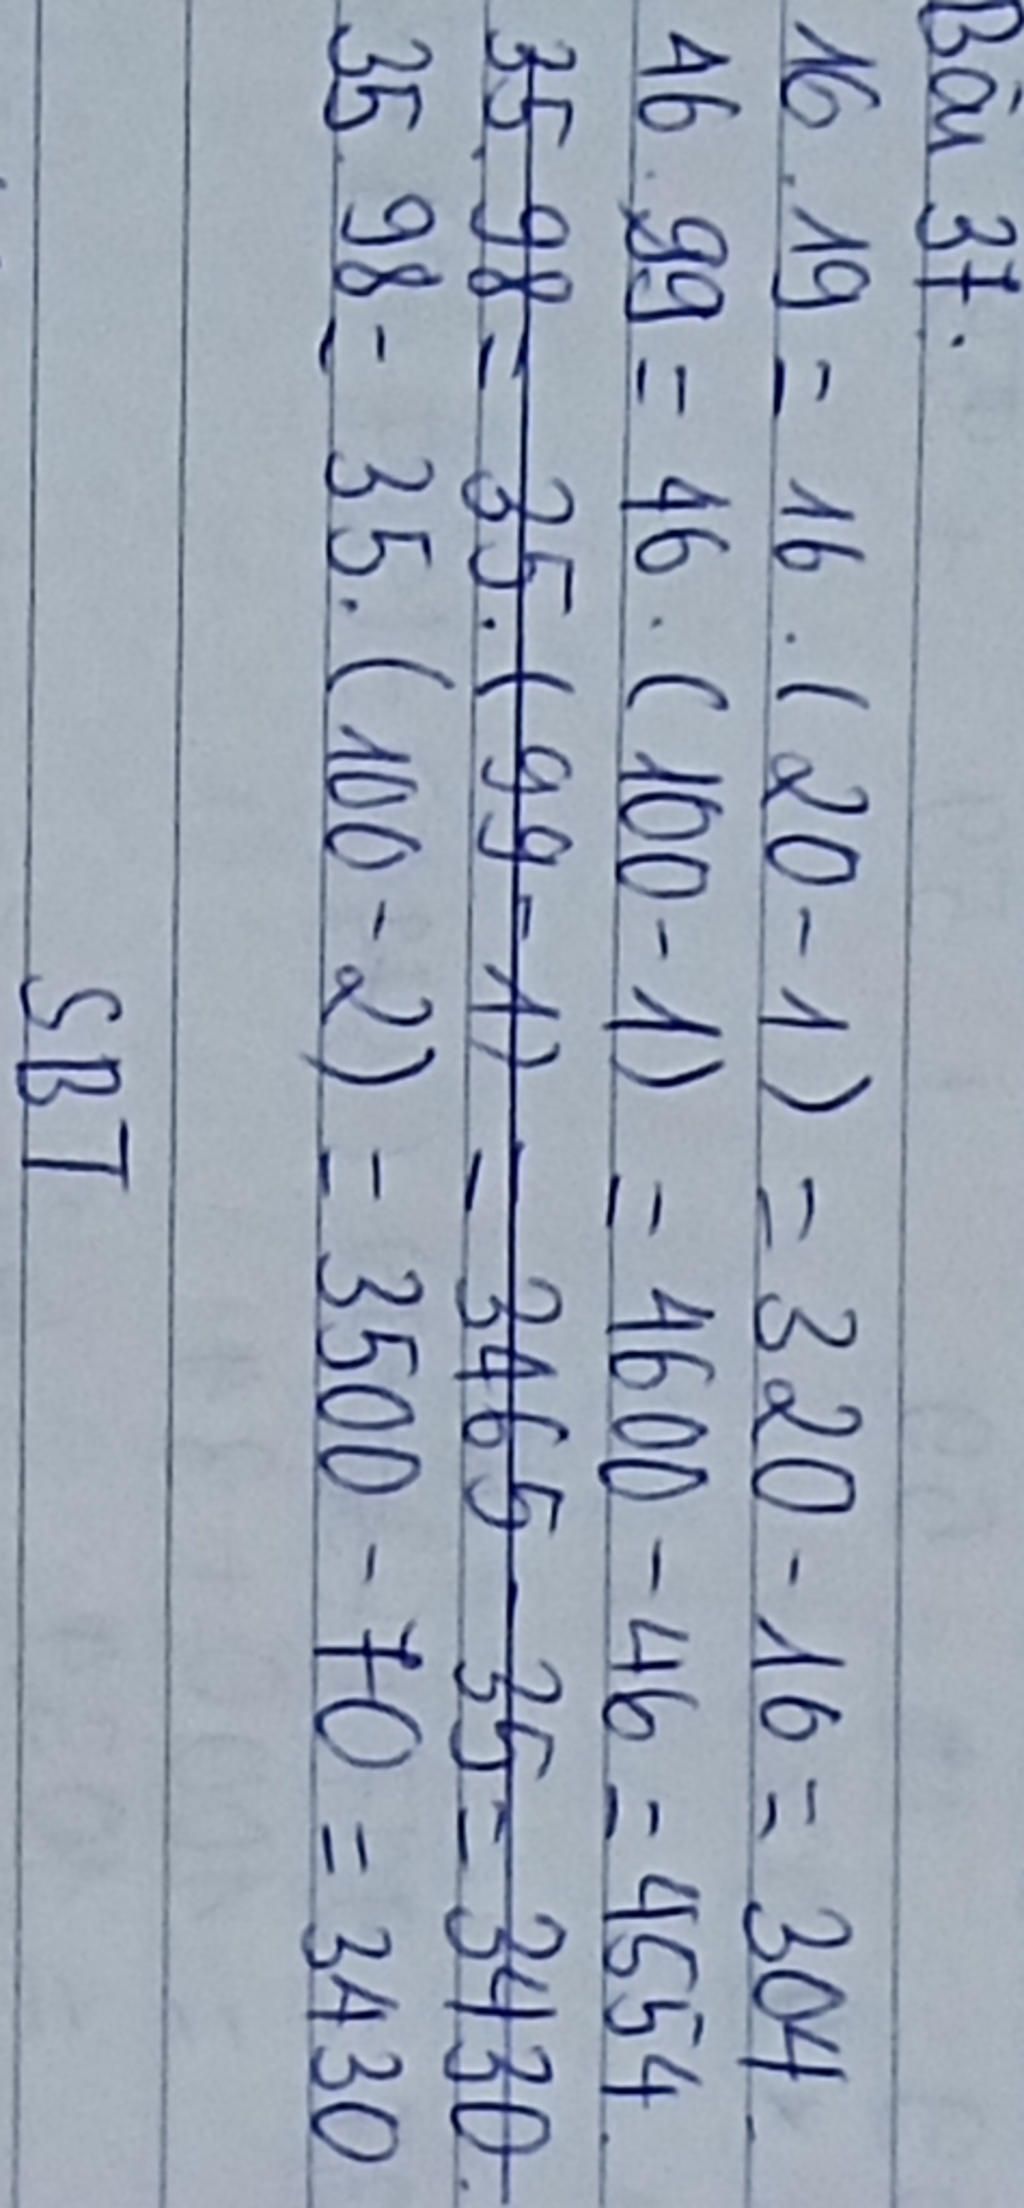 Bài 37.
16.19 = 16.(20-1) = 320-16 = 304.
46.99 = 46.(100-1) = 4600-46 = 4554.
35.98 = 35.(99-1) = 3465-35 = 3430.
35.98 = 35.(100-2) = 3500-70 = 3430
SBT